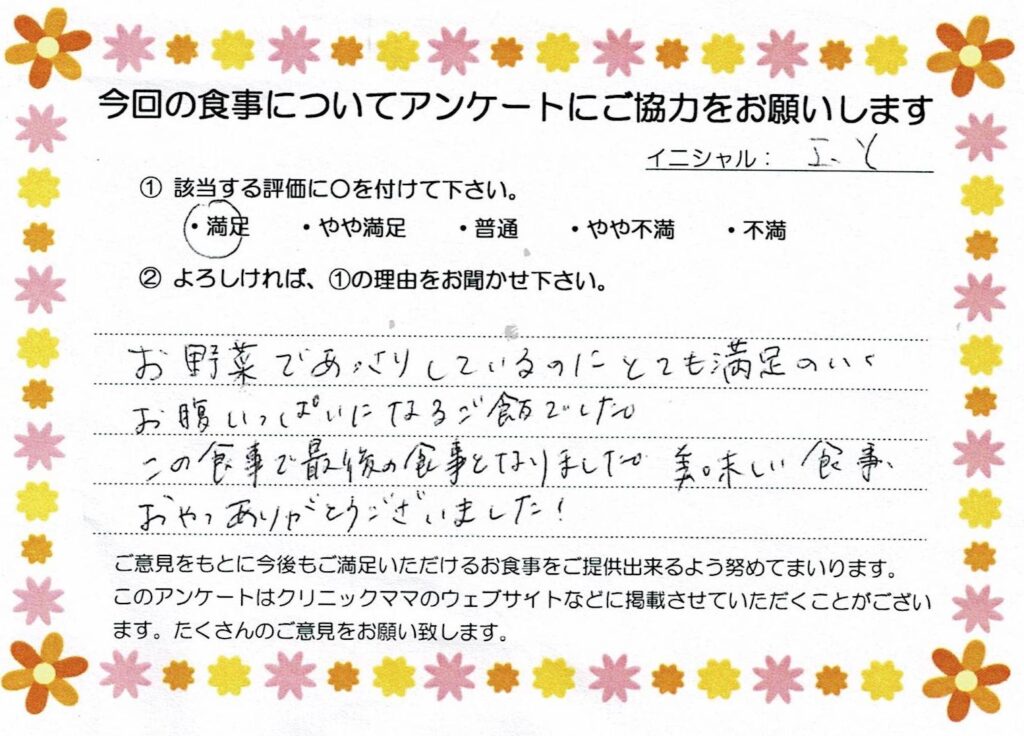 今回の食事についてアンケートにご協力をお願いします
イニシャル： I、Y
① 該当する評価に〇を付けて下さい。
・満足 ・やや満足 ・普通 ・やや不満 ・不満
② よろしければ、①の理由をお聞かせ下さい。
お野菜であっさりしているのにとても満足のいく
お腹いっぱいになるご飯でした。
この食事で最後の食事となりました。美味しい食事、
おやつありがとうございました！
ご意見をもとに今後もご満足いただけるお食事をご提供出来るよう努めてまいります。
このアンケートはクリニックママのウェブサイトなどに掲載させていただくことがござい
ます。たくさんのご意見をお願い致します。